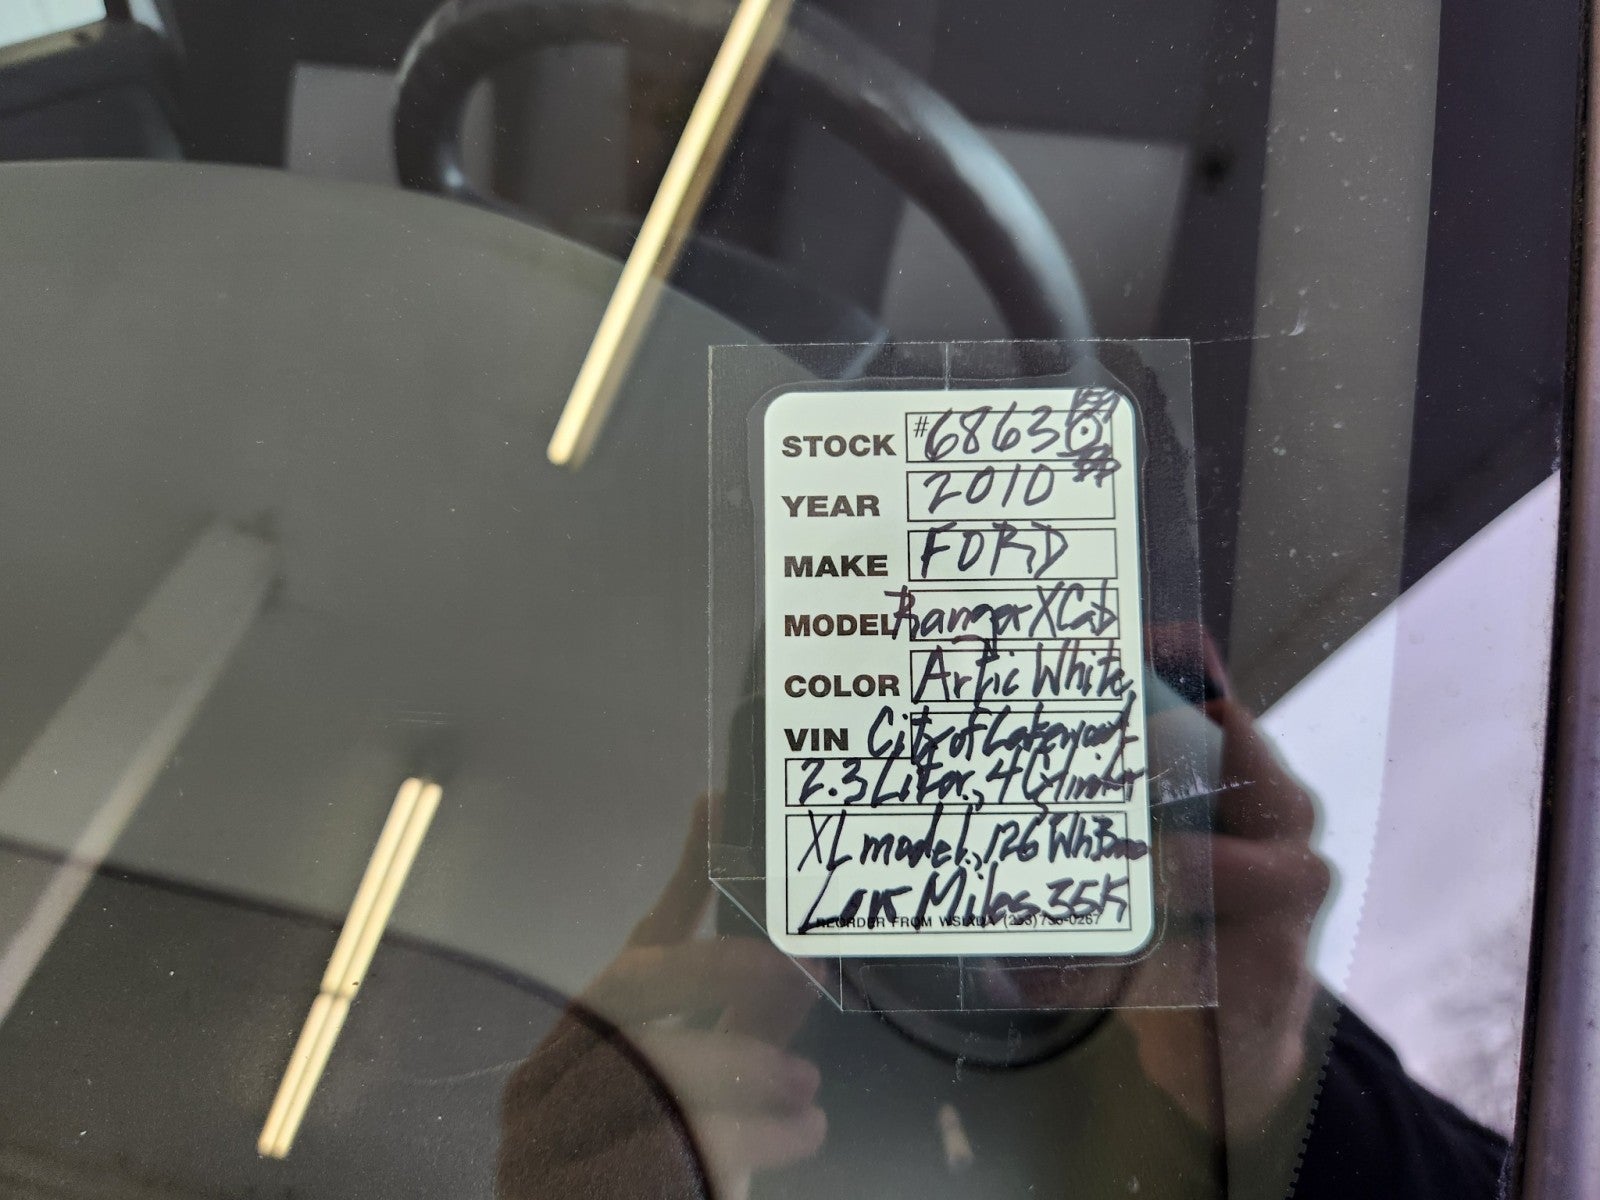 STOCK #68630
YEAR 2010
MAKE FORD
MODEL Ranger XCab
COLOR Artic White
VIN City of Lakewood
2.3 Liter, 4 Cylinder
XL model, 126 WhBase
Low Miles 35K
REORDER FROM WSIADA (253) 735-0267